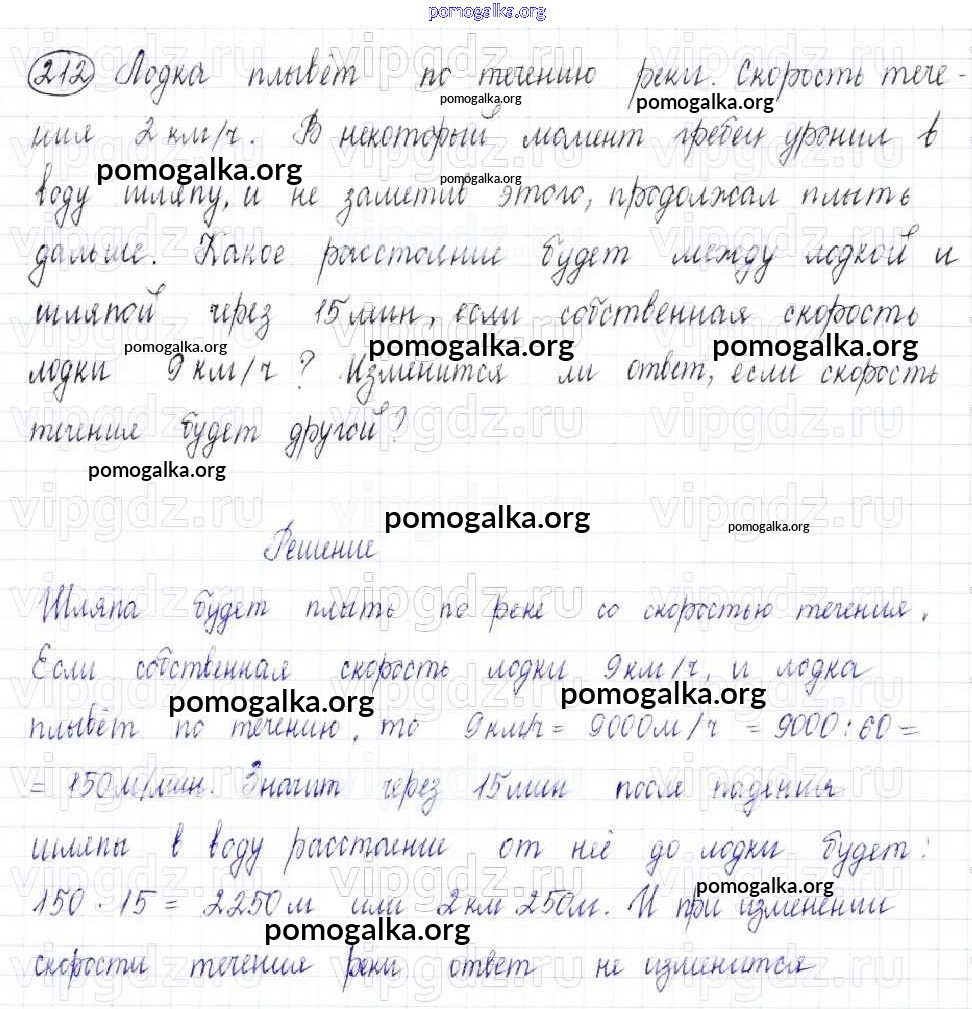 pomogalka.org
212 Лодка плывёт по течению реки. Скорость тече-
pomogalka.org pomogalka.org
ния 2 км/ч. В некоторый момент гребец уронил в
pomogalka.org pomogalka.org
воду шляпу, и не заметив этого, продолжал плыть
дальше. Какое расстояние будет между лодкой и
шляпой через 15 мин, если собственная скорость
pomogalka.org pomogalka.org pomogalka.org
лодки 9 км/ч? Изменится ли ответ, если скорость
течения будет другой?
pomogalka.org
vipgdz.ru vipgdz.ru vipgdz.ru
pomogalka.org pomogalka.org
Решение
Шляпа будет плыть по реке со скоростью течения.
Если собственная скорость лодки 9 км/ч, и лодка
pomogalka.org pomogalka.org
плывёт по течению, то 9 км/ч = 9000 м/ч = 9000 : 60 =
= 150 м/мин. Значит через 15 мин после падения
шляпы в воду расстояние от неё до лодки будет:
pomogalka.org
150 · 15 = 2250 м или 2 км 250 м. И при изменении
pomogalka.org
скорости течения реки ответ не изменится